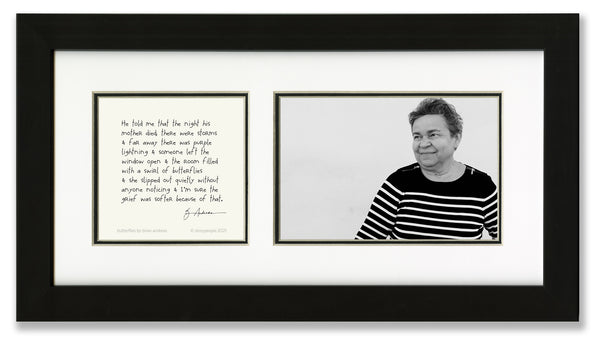 He told me that the night his
mother died there were storms
& far away there was purple
lightning & someone left the
window open & the room filled
with a swirl of butterflies
& she slipped out quietly without
anyone noticing & I'm sure the
grief was softer because of that.
B Andreas
butterflies by brian andreas © storypeople 2021